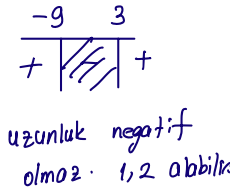 -9 3
+ - +
uzunluk negatif
olmaz. 1,2 alabilir